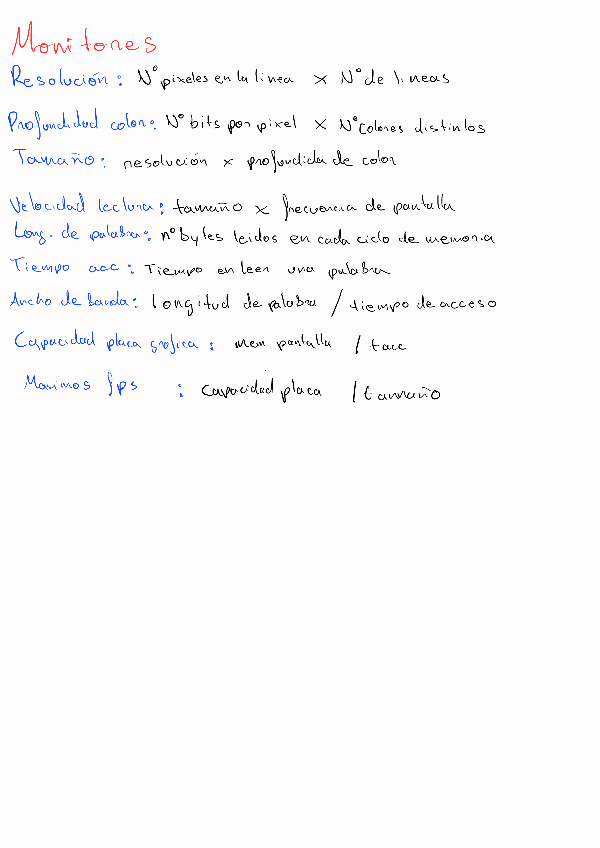 Monitores
Resolución: Nº pixeles en la linea x Nº de lineas
Profundidad color: Nº bits por pixel x Nº Colores distintos
Tamaño: resolución x profundida de color
Velocidad lectura: tamaño x frecuencia de pantalla
Long. de palabra: nº bytes leidos en cada ciclo de memoria
Tiempo acc: Tiempo en leer una palabra
Ancho de banda: longitud de palabra / tiempo de acceso
Capacidad placa grafica: mem pantalla / tacc
Maximos fps : capacidad placa / tamaño